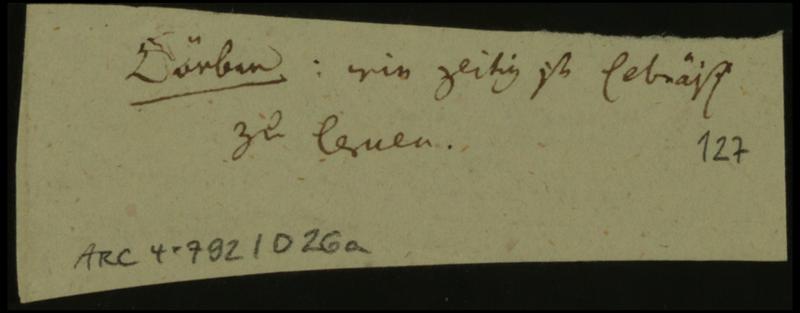 Körber : wie zeitig ist hebräisch
zu lernen.
127
ARC 4° 792 / D 26a